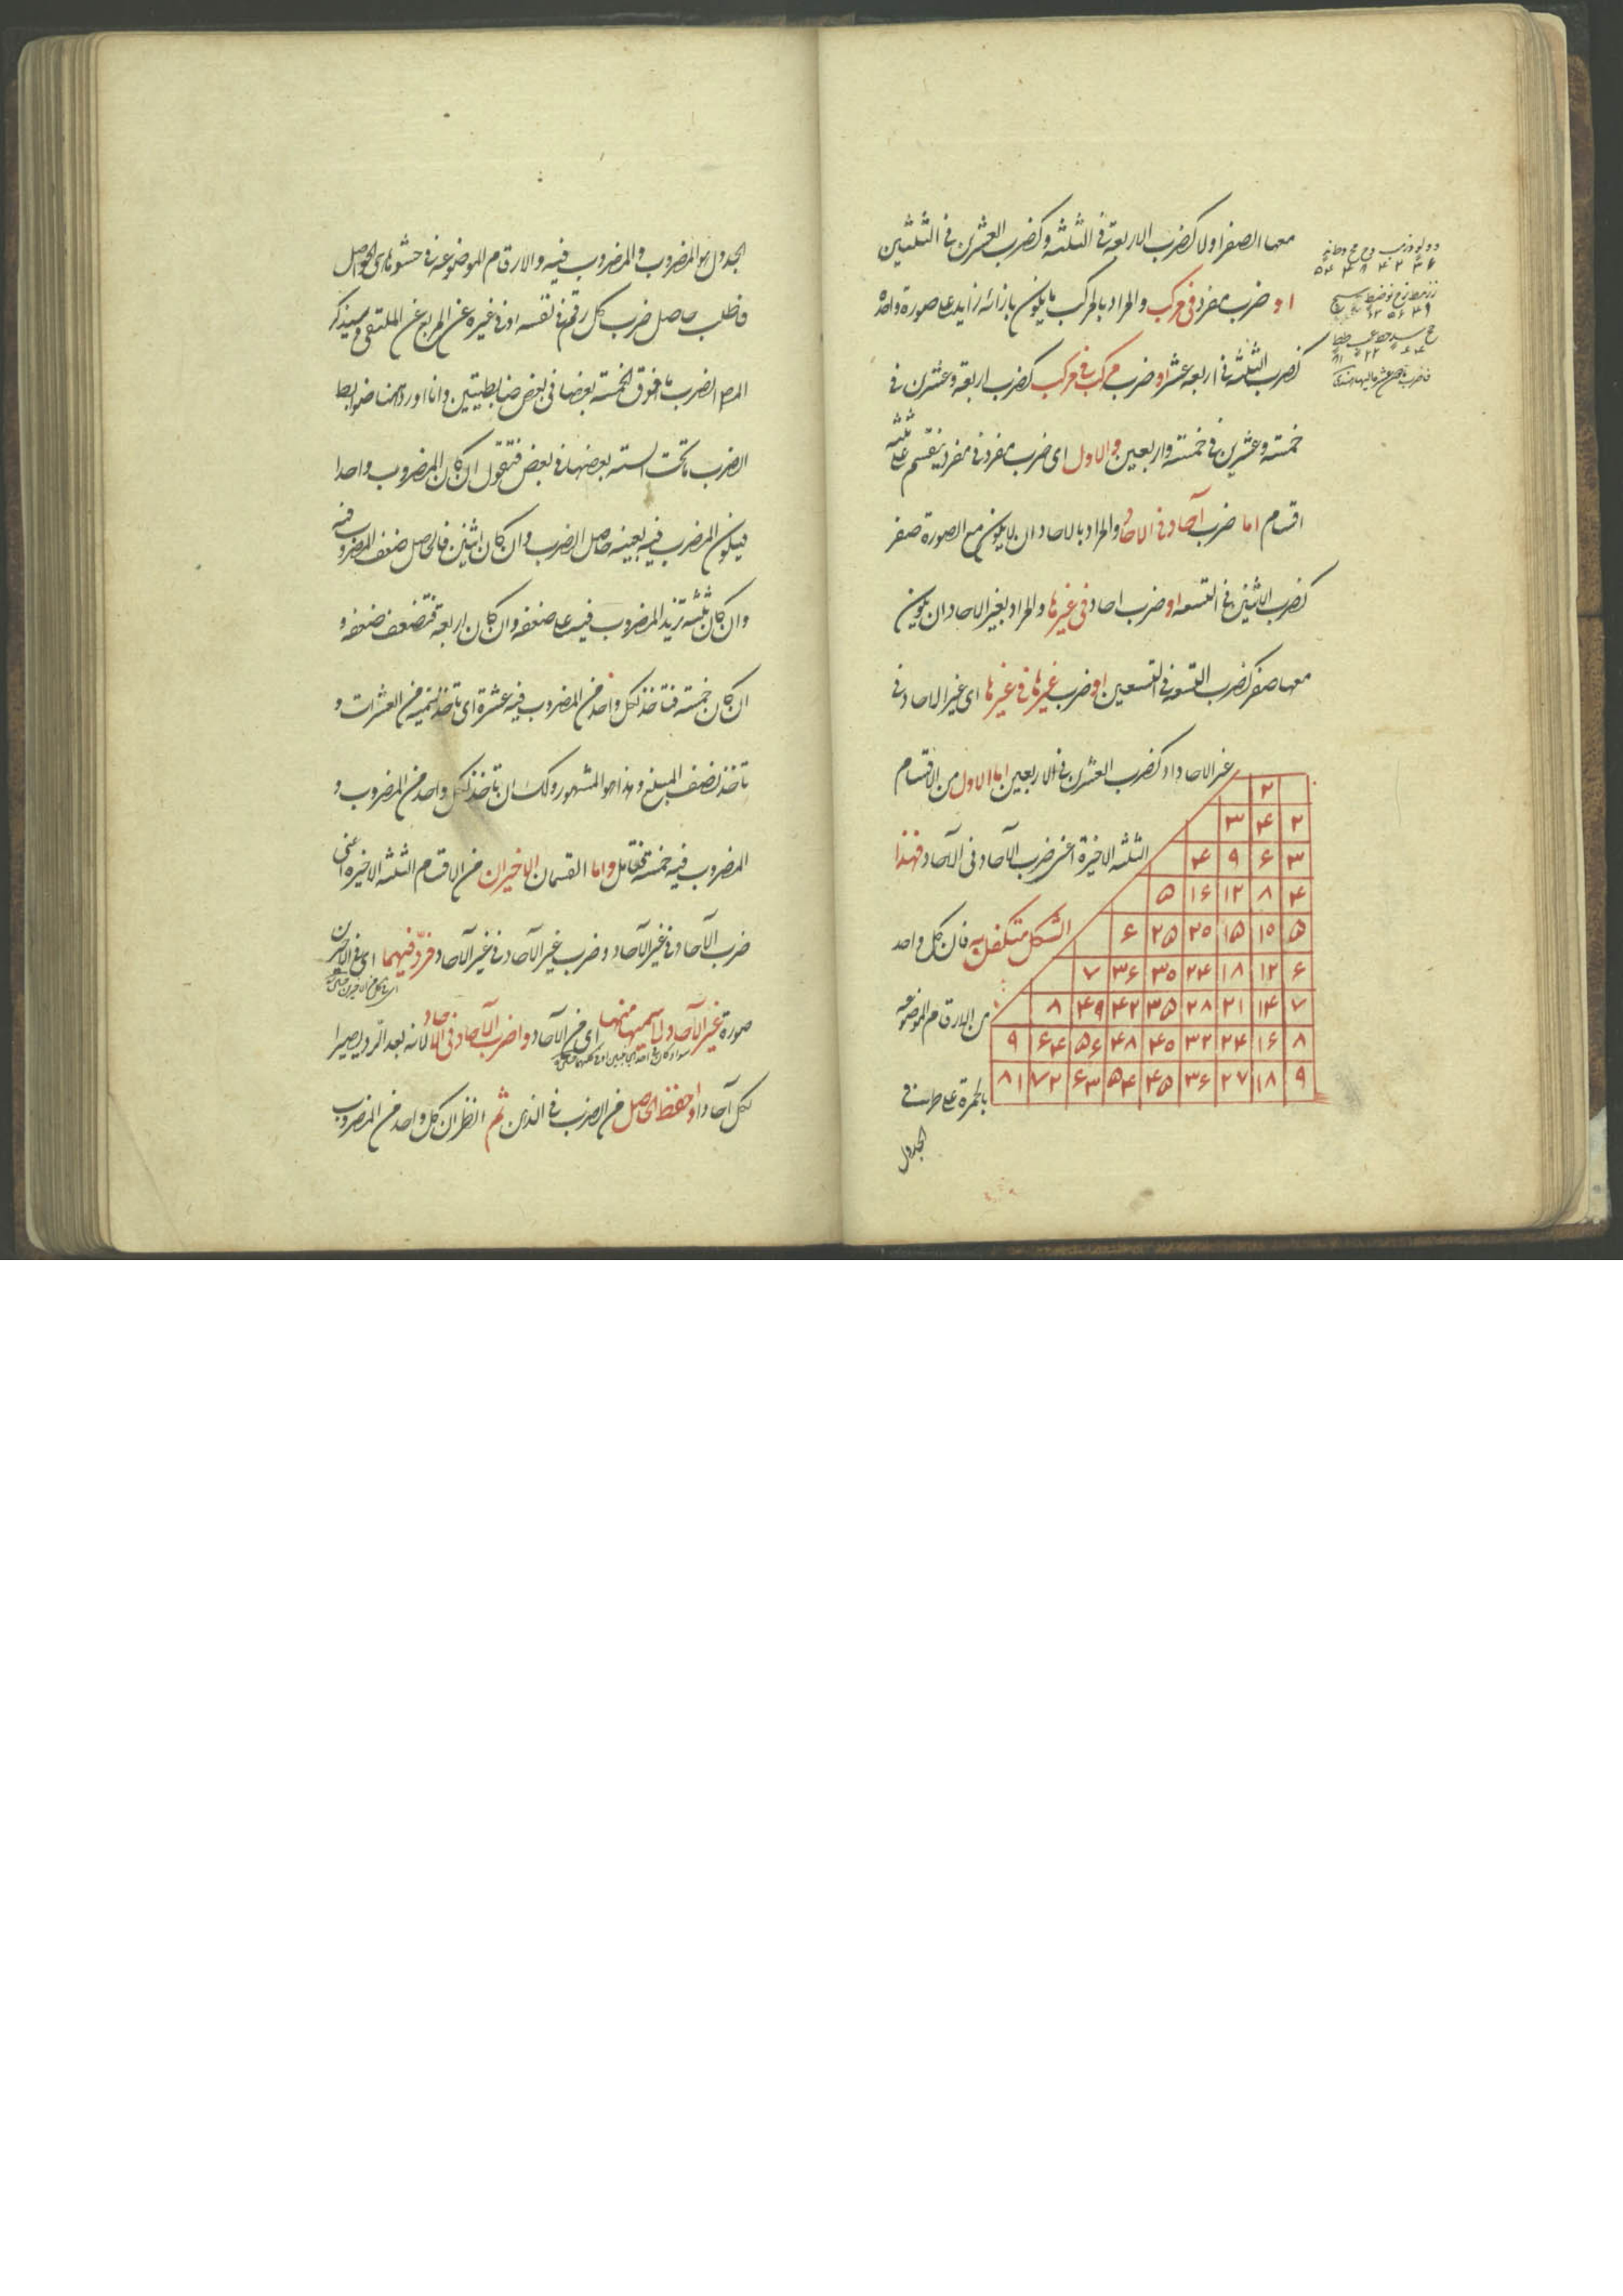 معها الصفر اولا كضرب الاربعة فى الثلثة وكضرب العشرين فى الثلثين
او ضرب مفرد فى مركب والمراد بالمركب ما يكون بازائه زايد على صورة واحدة
كضرب الثلثة فى اربعة عشر او ضرب مركب فى مركب كضرب اربعة وعشرين فى
خمسة وعشرين فى خمسة واربعين والاول اى ضرب مفرد فى مفرد ينقسم على ثلثة
اقسام اما ضرب آحاد فى الاحاد والمراد بالاحاد ان لا يكون مع الصورة صفر
كضرب الاثنين فى التسعة او ضرب احاد فى غيرها والمراد بغير الاحاد ان يكون
معها صفر كضرب التسعة فى التسعين او ضرب غيرها فى غيرها اى غير الاحاد فى
غير الاحاد كضرب العشرين فى الاربعين اما الاول من الاقسام
الثلثة الاخيرة اعنى ضرب الآحاد فى الآحاد فهذا
الشكل متكفل به فان كل واحد
من الارقام الموضوعة
بالحمرة على طرفى
الجدول
۲
۲ ۴ ۳
۳ ۶ ۹ ۴
۴ ۸ ۱۲ ۱۶ ۵
۵ ۱۵ ۱۵ ۲۵ ۲۵ ۶
۶ ۱۲ ۱۸ ۲۴ ۳۵ ۳۶ ۷
۷ ۱۴ ۲۱ ۲۸ ۳۵ ۴۲ ۴۹ ۸
۸ ۱۶ ۲۴ ۳۲ ۴۵ ۴۸ ۵۶ ۶۴ ۹
۹ ۱۸ ۲۷ ۳۶ ۴۵ ۵۴ ۶۳ ۷۲ ۸۱
الجدول هو المضروب والمضروب فيه والارقام الموضوعة فى حشوها هى الحواصل
فاطلب حاصل ضرب كل رقم فى نفسه او فى غيره عن المربع عن الملتقى وسيذكر
المص لضرب ما فوق الخمسة بعضها فى بعض ضابطتين وانا اورد هنا ضوابط
لضرب ما تحت الستة بعضها فى بعض فنقول ان كان المضروب واحدا
فيكون المضرب فيه بعينه حاصل الضرب وان كان اثنين فالحاصل ضعف المضروب فيه
وان كان ثلثة تزيد المضروب فيه على ضعفه وان كان اربعة فتضعف ضعفه و
ان كان خمسة فتاخذ لكل واحد من المضروب فيه عشرة اى تاخذ سميه من العشرات و
تاخذ نصف المبلغ وهذا هو المشهور ولك ان تاخذ لكل واحد من المضروب و
المضروب فيه خمسة فتامل واما القسمان الاخيران من الاقسام الثلثة الاخيرة اعنى
ضرب الآحاد فى غير الآحاد وضرب غير الآحاد فى غير الآحاد فرد فيهما اى فى الاخيرين
صورة غير الآحاد الى سميها منها اى من الآحاد واضرب الآحاد فى الآحاد لانه بعد الرد يصيرا
لكل آحادا واحفظ الحاصل من الضرب فى الذهن ثم انظر ان كل واحد من المضروب